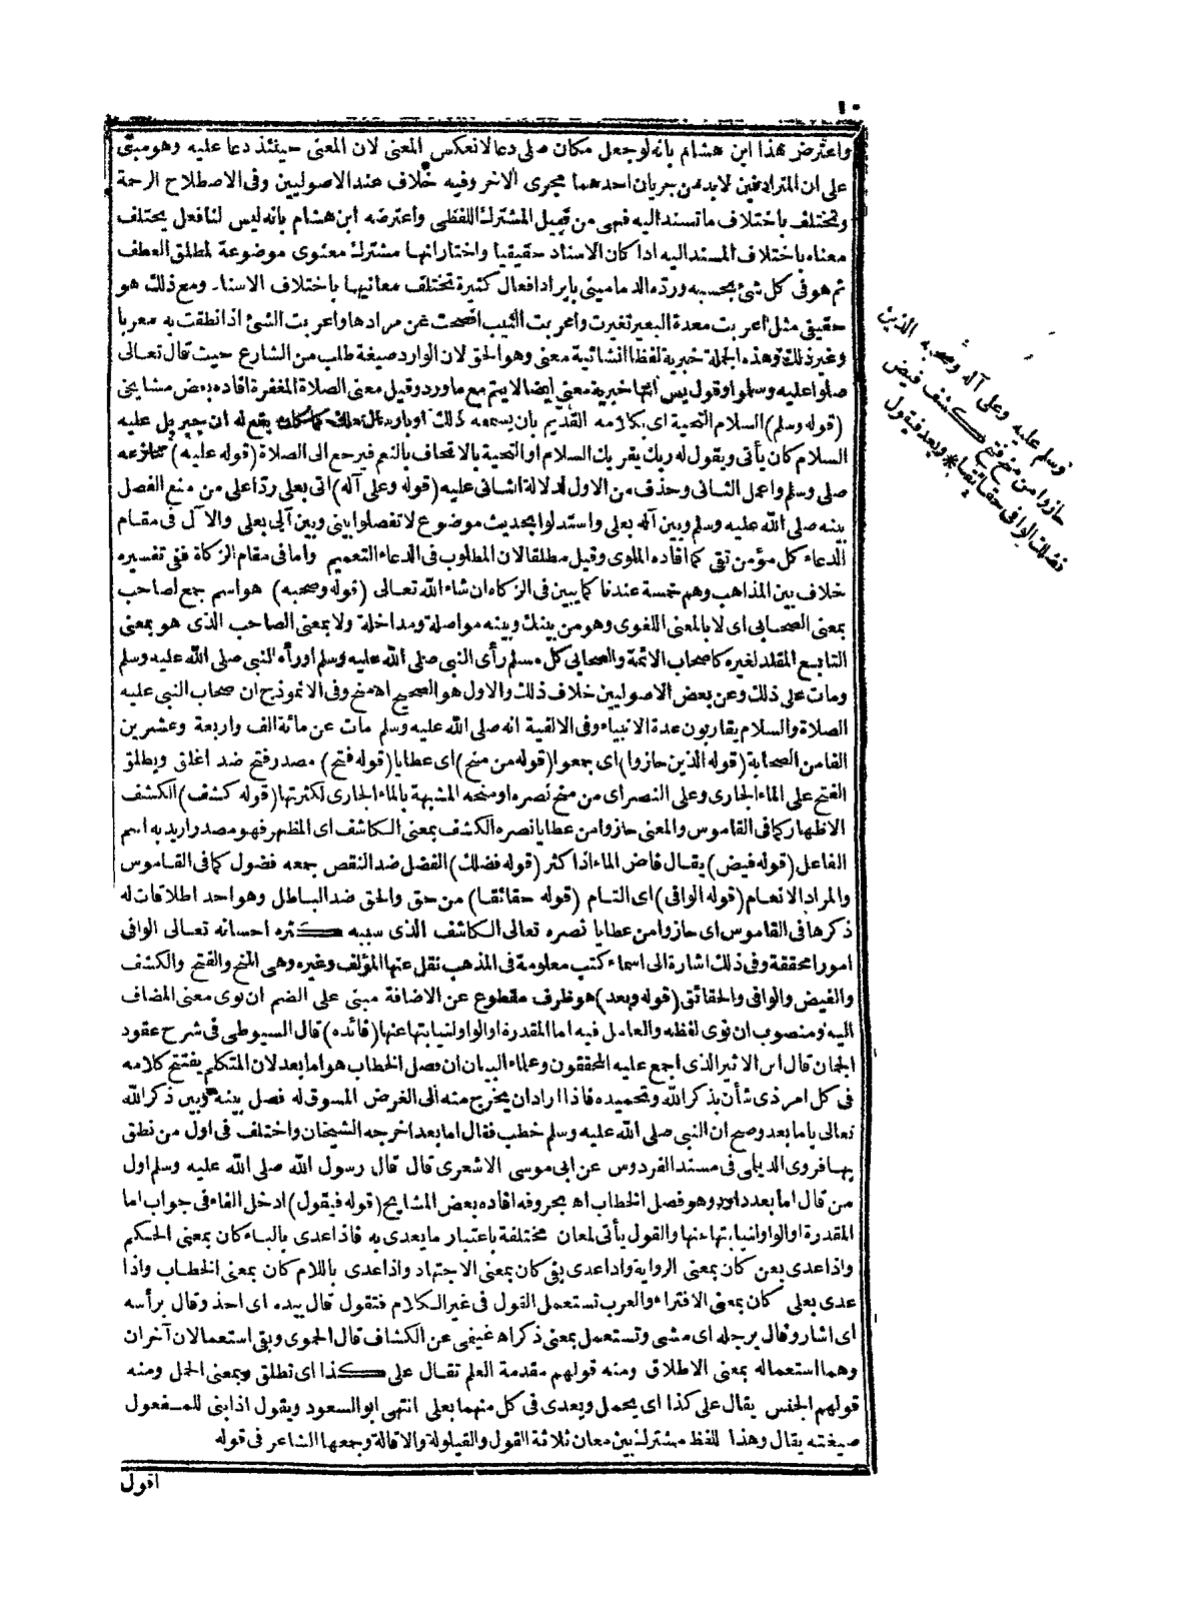 ١٠
واعترض هذا ابن هشام بانه لو جعل مكان صلى دعا لانعكس المعنى لان المعنى حينئذ دعا عليه وهو مبنى
على ان المترادفين لابد من جريان احدهما مجرى الاخر وفيه خلاف عند الاصوليين وفى الاصطلاح الرحمة
وتختلف باختلاف ما تسند اليه فهى من قبيل المشترك اللفظى واعترضه ابن هشام بانه ليس لنا فعل يختلف
معناه باختلاف المسند اليه اذا كان الاسناد حقيقيا واختار انها مشترك معنوى موضوعة لمطلق العطف
ثم هو فى كل شئ بحسبه ورده الدمامينى بايراد افعال كثيرة تختلف معانيها باختلاف الاسنا. ومع ذلك هو
حقيقى مثل اعربت معدة البعير تغيرت واعربت الثيب افصحت عن مرادها واعربت الشئ اذا نطقت به معربا
وغير ذلك وهذه الجملة خبرية لفظا انشائية معنى وهو الحق لان الوارد صيغة طلب من الشارع حيث قال تعالى
صلوا عليه وسلموا وقول يس انها خبرية معنى ايضا لا يتم مع ما ورد وقيل معنى الصلاة المغفرة افاده بعض مشايخى
(قوله وسلم) السلام التحية اى بكلامه القديم بان يسمعه ذلك او باو كما كان يقع له ان جبريل عليه
السلام كان يأتى ويقول له ربك يقريك السلام او التحية بالاتحاف بالنعم فيرجع الى الصلاة (قوله عليه) تنازعه
صلى وسلم واعمل الثانى وحذف من الاول لدلالة الثانى عليه (قوله وعلى آله) اتى بعلى ردا على من منع الفصل
بينه صلى الله عليه وسلم وبين آله بعلى واستدلوا بحديث موضوع لا تفصلوا بينى وبين آلى بعلى والآل فى مقام
الدعاء كل مؤمن تقى كما افاده الملوى وقيل مطلقا لان المطلوب فى الدعاء التعميم واما فى مقام الزكاة ففى تفسيره
خلاف بين المذاهب وهم خمسة عندنا كما يبين فى الزكاة ان شاء الله تعالى (قوله وصحبه) هو اسم جمع لصاحب
بمعنى الصحابى اى لا بالمعنى اللغوى وهو من بينك وبينه مواصلة ومداخلة ولا بمعنى الصاحب الذى هو بمعنى
التابع المقلد لغيره كاصحاب الائمة والصحابى كل مسلم رأى النبى صلى الله عليه وسلم او رأه النبى صلى الله عليه وسلم
ومات على ذلك وعن بعض الاصوليين خلاف ذلك والاول هو الصحيح اه منح وفى الانموذج ان صحاب النبى عليه
الصلاة والسلام يقاربون عدة الانبياء وفى الالقية انه صلى الله عليه وسلم مات عن مائة الف واربعة وعشرين
الفا من الصحابة (قوله الذين حازوا) اى جمعوا (قوله من منح) اى عطايا (قوله فتح) مصدر فتح ضد اغلق ويطلق
الفتح على الماء الجارى وعلى النصر اى من منح نصره او منحه المشبهة بالماء الجارى لكثرتها (قوله كشف) الكشف
الاظهار كما فى القاموس والمعنى حازوا من عطايا نصره الكشف بمعنى الكاشف اى المظهر فهو مصدر اريد به اسم
الفاعل (قوله فيض) يقال فاض الماء اذا كثر (قوله فضلك) الفضل ضد النقص جمعه فضول كما فى القاموس
والمراد الانعام (قوله الوافى) اى التام (قوله حقائقا) من حق والحق ضد الباطل وهو احد اطلاقات له
ذكرها فى القاموس اى حازوا من عطايا نصره تعالى الكاشف الذى سببه كثره احسانه تعالى الوافى
امورا محققة وفى ذلك اشارة الى اسماء كتب معلومة فى المذهب نقل عنها المؤلف وغيره وهى المنح والفتح والكشف
والفيض والوافى والحقائق (قوله وبعد) هو ظرف مقطوع عن الاضافة مبنى على الضم ان نوى معنى المضاف
اليه ومنصوب ان نوى لفظه والعامل فيه اما المقدرة او الواو لنيابتها عنها (فائده) قال السيوطى فى شرح عقود
الجمان قال ابن الاثير الذى اجمع عليه المحققون وعلماء البيان ان فصل الخطاب هو اما بعد لان المتكلم يفتتح كلامه
فى كل امر ذى شأن بذكر الله وتحميده فاذا اراد ان يخرج منه الى الغرض المسوق له فصل بينه وبين ذكر الله
تعالى باما بعد وصح ان النبى صلى الله عليه وسلم خطب فقال اما بعد اخرجه الشيخان واختلف فى اول من نطق
بها فروى الديلمى فى مسند الفردوس عن ابى موسى الاشعرى قال قال رسول الله صلى الله عليه وسلم اول
من قال اما بعد داود وهو فصل الخطاب اه بحروفه افاده بعض المشايخ (قوله فيقول) ادخل الفاء فى جواب اما
المقدرة او الواو لنيابتها عنها والقول يأتى لمعان مختلفة باعتبار ما يعدى به فاذا عدى بالباء كان بمعنى الحكم
واذا عدى بعن كان بمعنى الرواية واذا عدى بفى كان بمعنى الاجتهاد واذا عدى باللام كان بمعنى الخطاب واذا
عدى بعلى كان بمعنى الافتراء والعرب تستعمل القول فى غير الكلام فتقول قال بيده اى اخذ وقال برأسه
اى اشار وقال برجله اى مشى وتستعمل بمعنى ذكر اه غنيمى عن الكشاف قال الحموى وبقى استعمالان آخران
وهما استعماله بمعنى الاطلاق ومنه قولهم مقدمة العلم تقال على كذا اى تطلق وبمعنى الحمل ومنه
قولهم الجنس يقال على كذا اى يحمل ويعدى فى كل منهما بعلى انتهى ابو السعود ويقول اذا بنى للمفعول
صيغته يقال وهذا لفظ مشترك بين معان ثلاثة القول والقيلولة والاقالة وجمعها الشاعر فى قوله
اقول
وسلم عليه وعلى آله وصحبه الذين
حازوا من منح فتح كشف فيض
فضلك الوافى حقائقا * وبعد فيقول